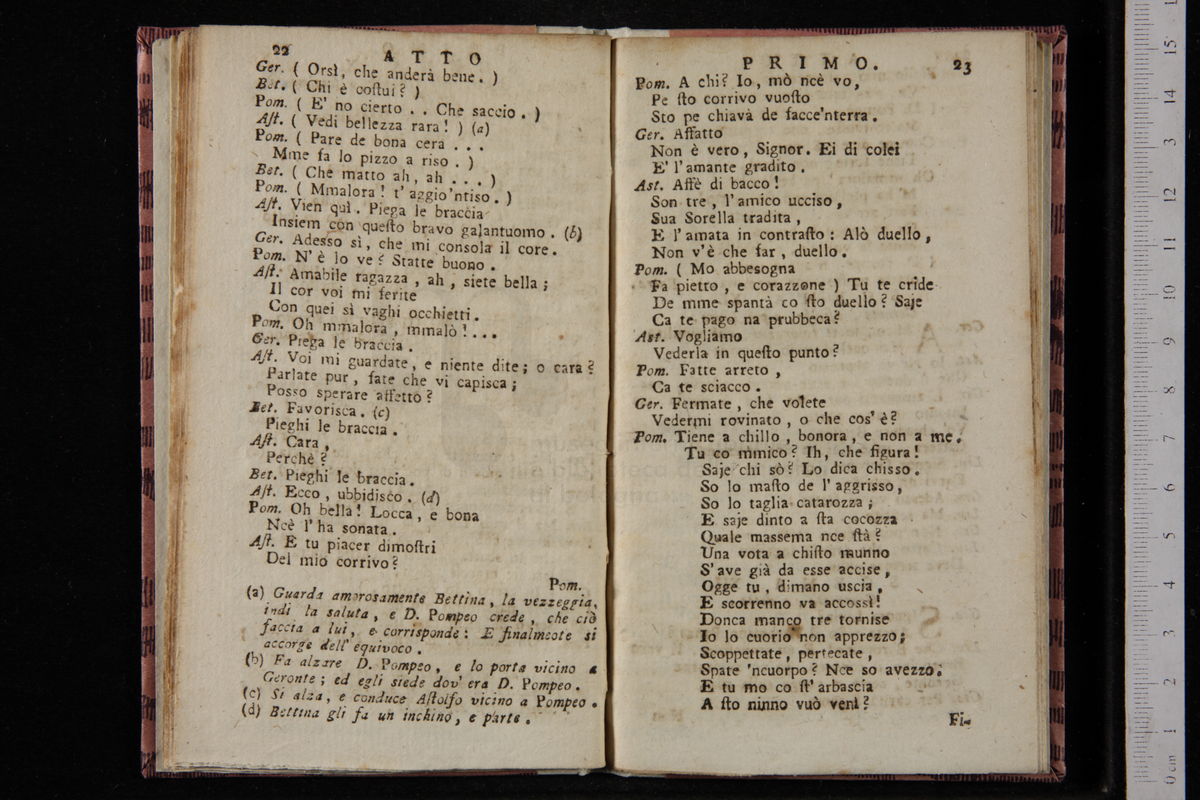 22 ATTO
Ger. ( Orsì, che anderà bene. )
Bet. ( Chi è coſtui? )
Pom. ( E' no cierto . . Che saccio. )
Aſt. ( Vedi bellezza rara! ) (a)
Pom. ( Pare de bona cera . . .
Mme fa lo pizzo a riso. )
Bet. ( Che matto ah, ah . . . )
Pom. ( Mmalora! t' aggio'ntiso. )
Aſt. Vien quì. Piega le braccia
Insiem con queſto bravo galantuomo. (b)
Ger. Adesso sì, che mi consola il core.
Pom. N' è lo ve? Statte buono.
Aſt. Amabile ragazza, ah, siete bella;
Il cor voi mi ferite
Con quei sì vaghi occhietti.
Pom. Oh mmalora, mmalò! . . .
Ger. Piega le braccia.
Aſt. Voi mi guardate, e niente dite; o cara?
Parlate pur, fate che vi capisca;
Posso sperare affetto?
Bet. Favorisca. (c)
Pieghi le braccia.
Aſt. Cara,
Perchè?
Bet. Pieghi le braccia.
Aſt. Ecco, ubbidisco. (d)
Pom. Oh bella! Locca, e bona
Ncè l'ha sonata.
Aſt. E tu piacer dimoſtri
Del mio corrivo?
Pom.
(a) Guarda amorosamente Bettina, la vezzeggia,
indi la saluta, e D. Pompeo crede, che ciò
faccia a lui, e corrisponde: E finalmeote si
accorge dell' equivoco.
(b) Fa alzare D. Pompeo, e lo porta vicino a
Geronte; ed egli siede dov' era D. Pompeo.
(c) Si alza, e conduce Aſtolfo vicino a Pompeo.
(d) Bettina gli fa un inchino, e parte.
PRIMO. 23
Pom. A chi? Io, mò ncè vo,
Pe ſto corrivo vuoſto
Sto pe chiavà de facce'nterra.
Ger. Affatto
Non è vero, Signor. Ei di colei
E' l'amante gradito.
Ast. Affè di bacco!
Son tre, l'amico ucciso,
Sua Sorella tradita,
E l'amata in contraſto: Alò duello,
Non v'è che far, duello.
Pom. ( Mo abbesogna
Fa pietto, e corazzone ) Tu te cride
De mme spantà co ſto duello? Saje
Ca te pago na prubbeca?
Ast. Vogliamo
Vederla in queſto punto?
Pom. Fatte arreto,
Ca te sciacco.
Ger. Fermate, che volete
Vedermi rovinato, o che cos' è?
Pom. Tiene a chillo, bonora, e non a me.
Tu co mmico? Ih, che figura!
Saje chi sò? Lo dica chisso.
So lo maſto de l' aggrisso,
So lo taglia catarozza;
E saje dinto a ſta cocozza
Quale massema nce ſtà?
Una vota a chiſto munno
S'ave già da esse accise,
Ogge tu, dimano uscia,
E scorrenno va accossì!
Donca manco tre tornise
Io lo cuorio non apprezzo;
Scoppettate, pertecate,
Spate 'ncuorpo? Nce so avezzo:
E tu mo co ſt' arbascia
A ſto ninno vuò venì?
Fi-